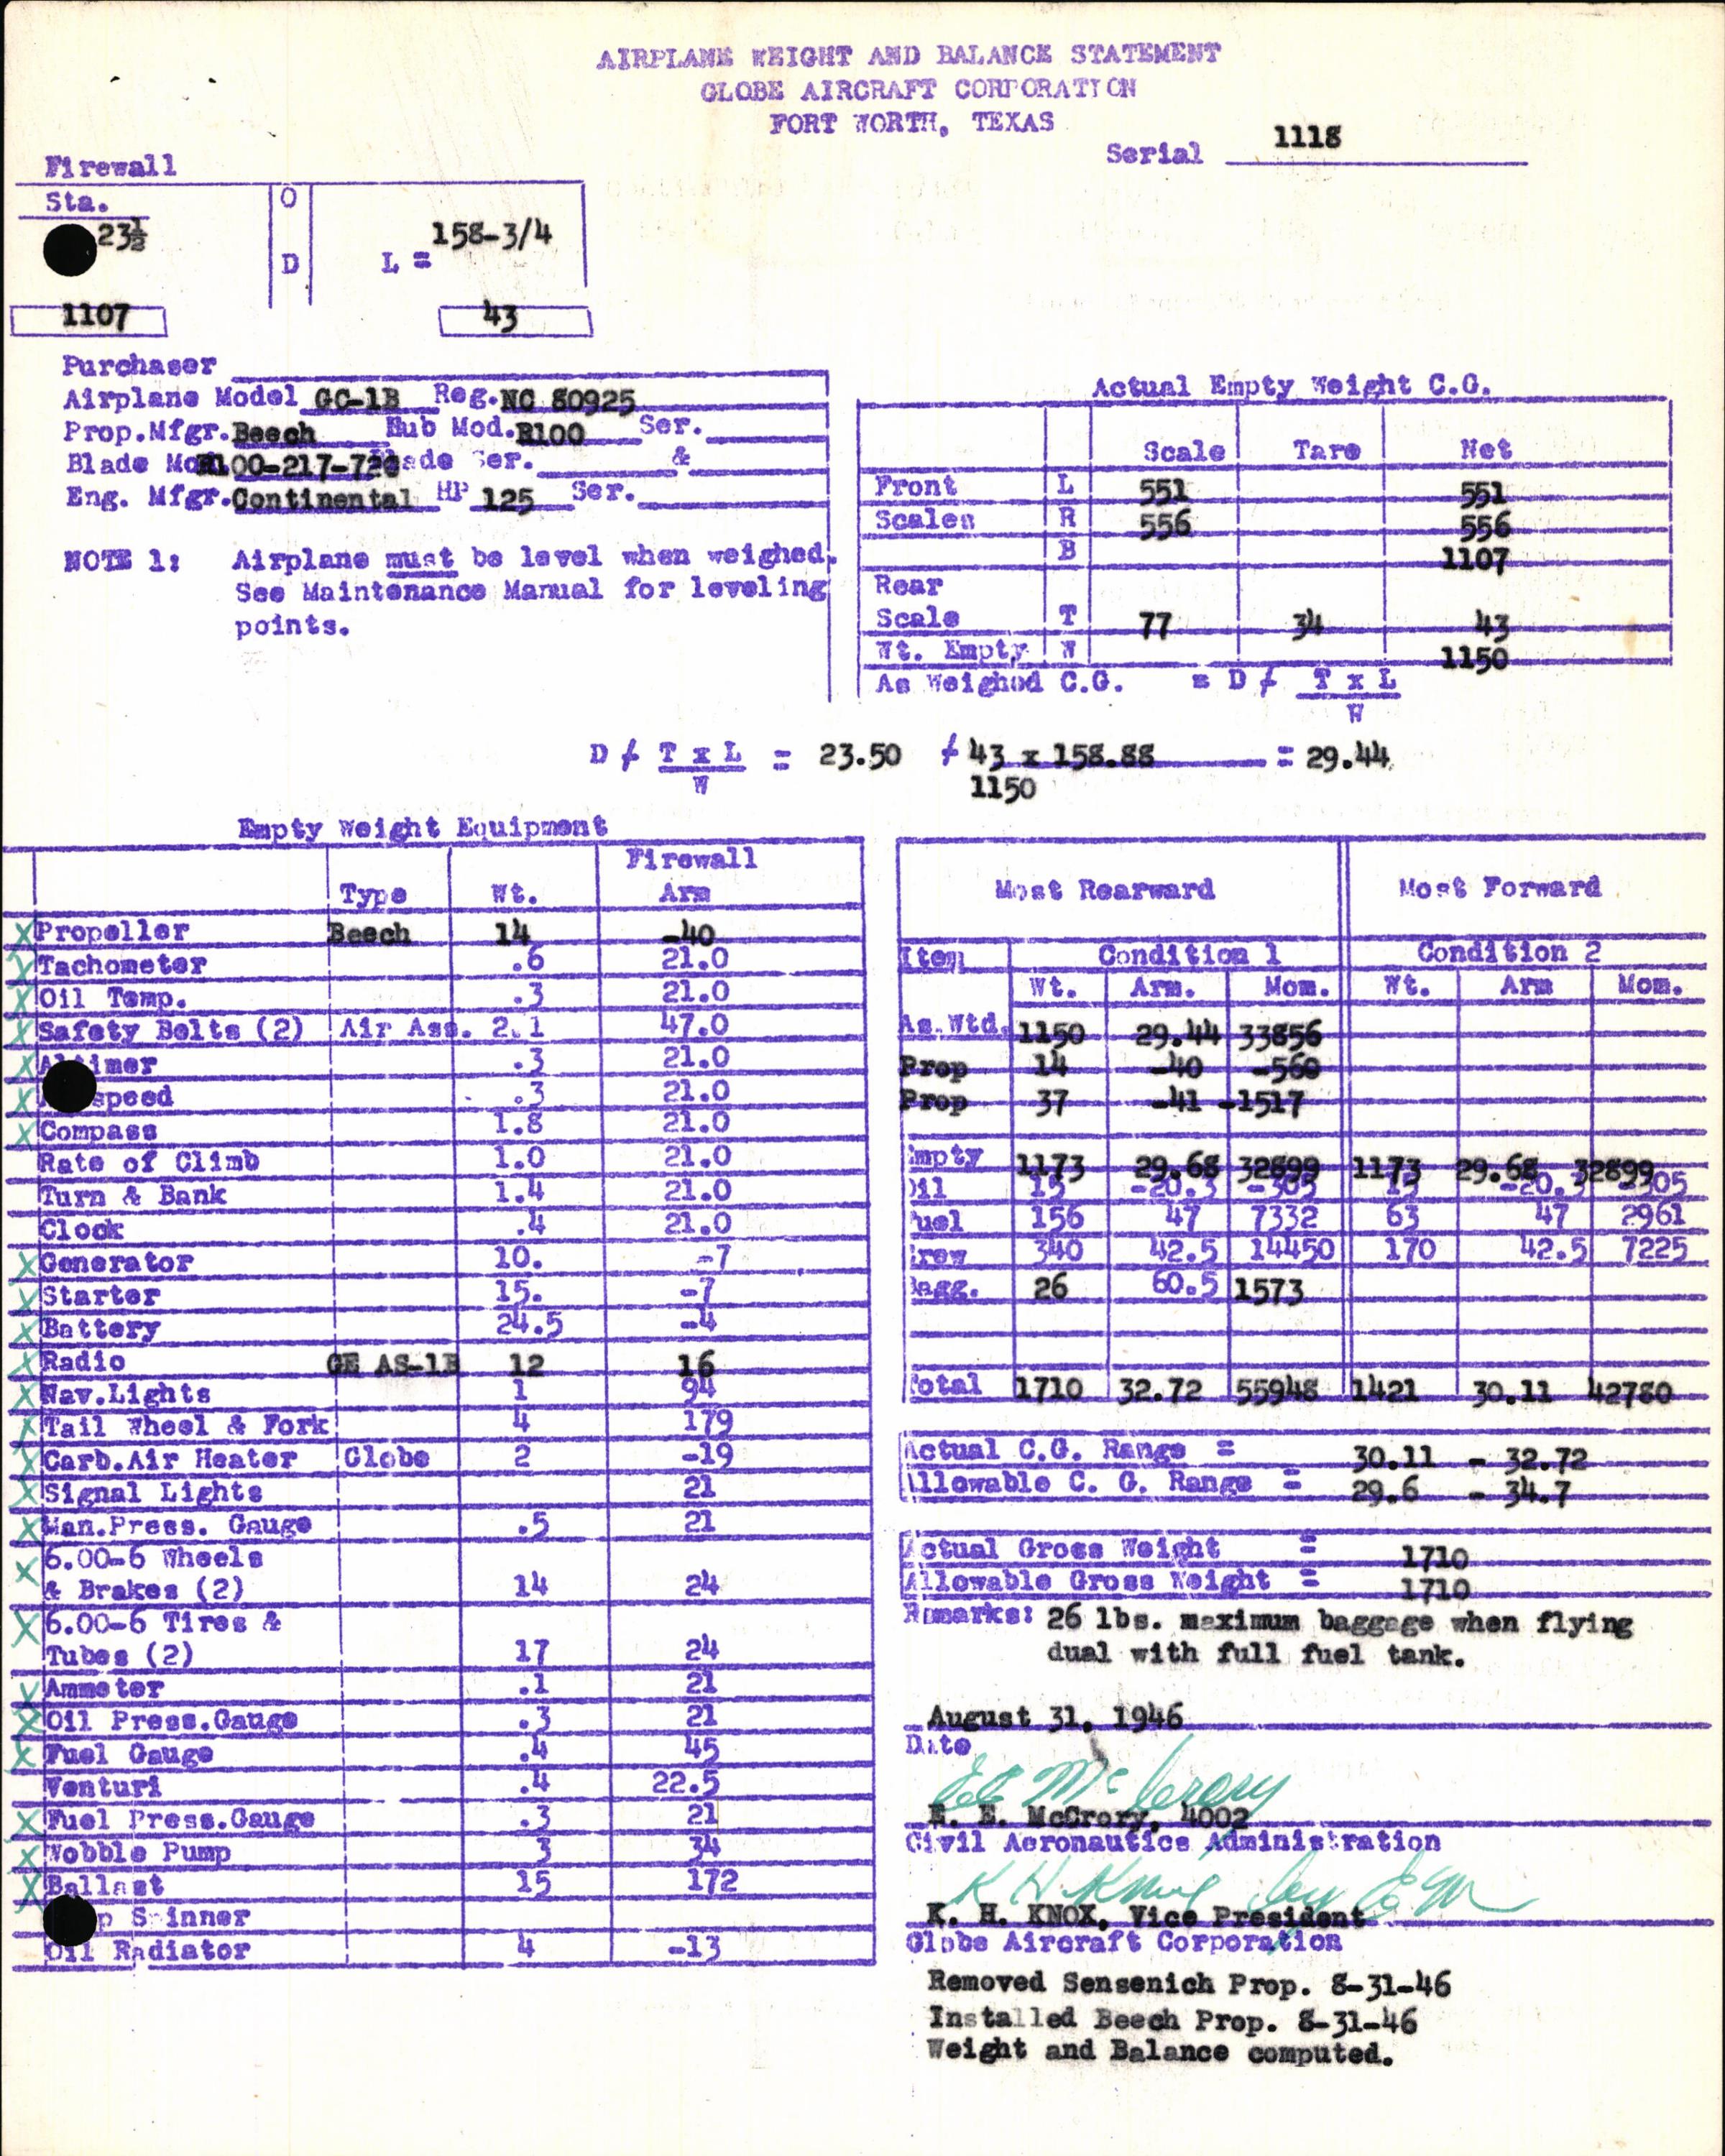 AIRPLANE WEIGHT AND BALANCE STATEMENT
GLOBE AIRCRAFT CORPORATION
FORT WORTH, TEXAS
Serial 1118
Firewall
Sta.
23½
O
D
L = 158-3/4
1107
43
Purchaser
Airplane Model GC-1B Reg. NC 80925
Prop.Mfgr. Beech Hub Mod. R100 Ser.
Blade Ser. &
Eng. Mfgr. Continental HP 125 Ser.
NOTE 1: Airplane must be level when weighed.
See Maintenance Manual for leveling
points.
Actual Empty Weight C.G.
Scale Tare Net
Front L 551 551
Scales R 556 556
B 1107
Rear
Scale T 77 34 43
Wt. Empty W 1150
As Weighed C.G. = D ⁄ T x L
W
D ⁄ T x L = 23.50 ⁄ 43 x 158.88 = 29.44
W 1150
Empty Weight Equipment
Firewall
Type Wt. Arm
X Propeller Beech 14 -40
X Tachometer .6 21.0
X Oil Temp. .3 21.0
X Safety Belts (2) Air Ass. 2.1 47.0
X .3 21.0
X speed .3 21.0
X Compass 1.8 21.0
Rate of Climb 1.0 21.0
Turn & Bank 1.4 21.0
Clock .4 21.0
X Generator 10. -7
X Starter 15. -7
X Battery 24.5 -4
X Radio GE AS-1B 12 16
X Nav.Lights 1 94
X Tail Wheel & Fork 4 179
X Carb.Air Heater Globe 2 -19
X Signal Lights 21
X Man.Press. Gauge .5 21
X 6.00-6 Wheels
& Brakes (2) 14 24
X 6.00-6 Tires &
Tubes (2) 17 24
X Ammeter .1 21
X Oil Press.Gauge .3 21
X Fuel Gauge .4 45
Venturi .4 22.5
X Fuel Press.Gauge .3 21
X Wobble Pump 3 34
X Ballast 15 172
p Spinner
Oil Radiator 4 -13
Most Rearward Most Forward
Item Condition 1 Condition 2
Wt. Arm. Mom. Wt. Arm Mom.
As Wtd. 1150 29.44 33856
Prop 14 -40 -560
Prop 37 -41 -1517
Empty 1173 29.68 32899 1173 29.68 32899
Oil 15 -20.3 -305 15 -20.3 305
Fuel 156 47 7332 63 47 2961
Crew 340 42.5 14450 170 42.5 7225
Bagg. 26 60.5 1573
Total 1710 32.72 55948 1421 30.11 42780
Actual C.G. Range = 30.11 - 32.72
Allowable C. G. Range = 29.6 - 34.7
Actual Gross Weight = 1710
Allowable Gross Weight = 1710
Remarks: 26 lbs. maximum baggage when flying
dual with full fuel tank.
August 31, 1946
Date
EE McCrory
E. E. McCrory, 4002
Civil Aeronautics Administration
K H Knox by EEM
K. H. KNOX, Vice President
Globe Aircraft Corporation
Removed Sensenich Prop. 8-31-46
Installed Beech Prop. 8-31-46
Weight and Balance computed.